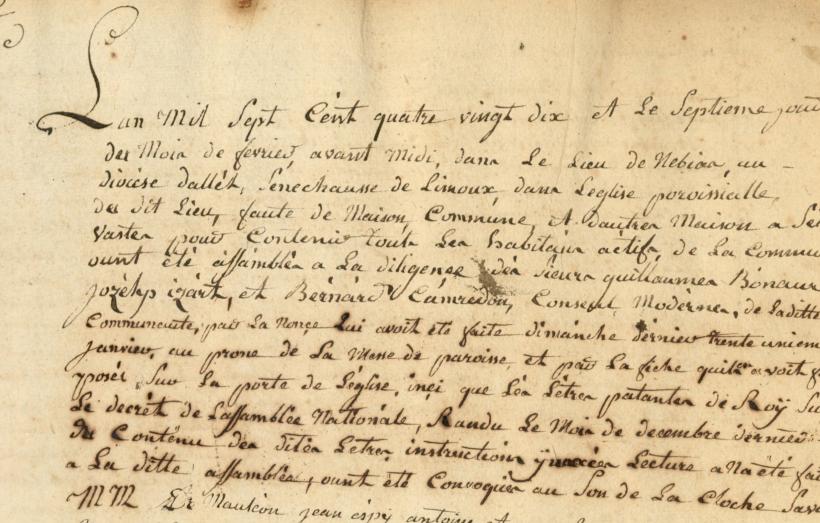 Lan Mil Sept Cent quatre vingt dix et Le Septieme jour
du Mois de fevrier, avant Midi, dans Le Lieu de Nebias, au -
diocèse dallét, Sénechausse de Limoux dans Leglise paroissialle,
du dit Lieu, faute de Maison Commune, et dautre Maison a
vastes pour Contenir touts Les habitans actifs de La Commu
ount été assamblés a La diligense des sieurs guilhaumes Bonaur
Jozéhp izart, et Bérnard Camredon, Consuls Modérnes, de Laditte
Communaute, par La Nonçe qui avoit été faite dimanche dérnier trente uniem
janvier, au prone de La Messe de paroisse, et par La fiche quils avoit
yposés Sur La porte de Léglise, inçi que Les Létres patantes de Roÿ Su
Le decrét de Lassamblée Nationale, Randu Le Mois de decembre dérnier
du Conténu des dites Letres instructions Lecture a Na été fai
a La ditte assamblée, ount été Convoqués au Son de La Cloche Sav
MM De Mauléon jean espi antoine